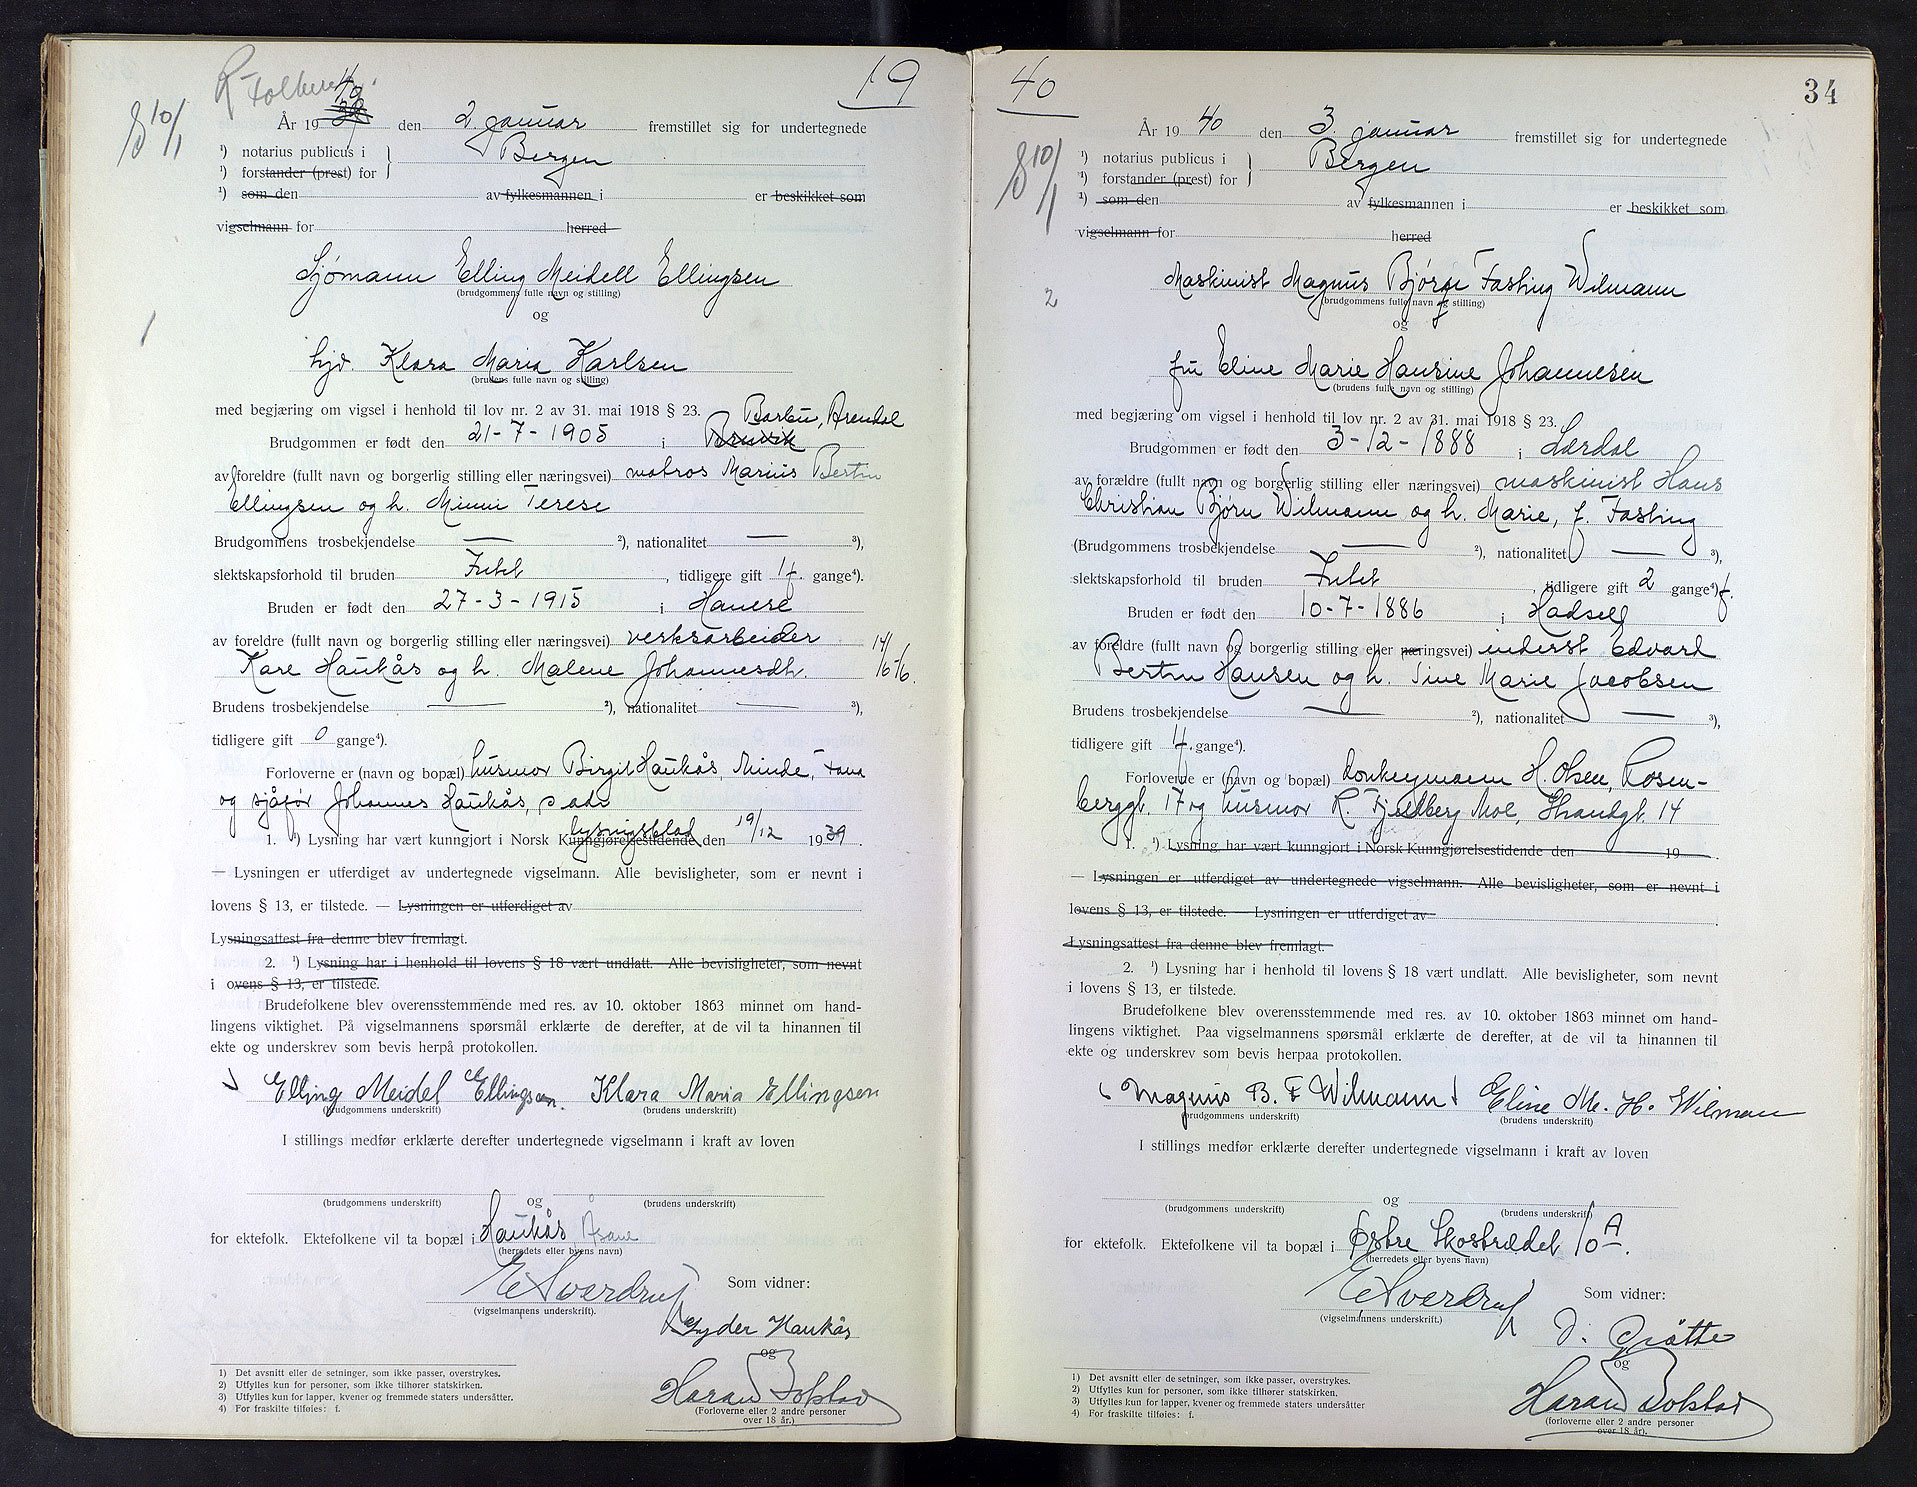 R Folkereg.
19
§ 10/1
År 19 39 40 den 2. januar fremstillet sig for undertegnede
¹) notarius publicus i } Bergen
¹) forstander (prest) for
¹) som den av fylkesmannen i er beskikket som
vigselmann for herred
Sjømann Elling Meidell Ellingsen
(brudgommens fulle navn og stilling)
og
1
hjv. Klara Maria Karlsen
(brudens fulle navn og stilling)
med begjæring om vigsel i henhold til lov nr. 2 av 31. mai 1918 § 23. Barbu, Arendal
Brudgommen er født den 21-7-1905 i
av foreldre (fullt navn og borgerlig stilling eller næringsvei) matros Marius Bertin
Ellingsen og h. Minni Terese
Brudgommens trosbekjendelse — ²), nationalitet — ³),
slektskapsforhold til bruden Intet, tidligere gift 1 f. gange⁴).
Bruden er født den 27-3-1915 i Havere
av foreldre (fullt navn og borgerlig stilling eller næringsvei) verksarbeider
Kare Haukås og h. Malene Johannesdtr. 14/6-16.
Brudens trosbekjendelse — ²), nationalitet — ³),
tidligere gift 0 gange⁴).
Forloverne er (navn og bopæl) husmor Birgit Haukås, Minde, Fana
og sjåfør Johannes Haukås, s ads
lysningsblad
1. ¹) Lysning har vært kunngjort i Norsk Kunngjørelsestidende den 19/12 1939.
— Lysningen er utferdiget av undertegnede vigselmann. Alle bevisligheter, som er nevnt i
lovens § 13, er tilstede. — Lysningen er utferdiget av
Lysningsattest fra denne blev fremlagt.
2. ¹) Lysning har i henhold til lovens § 18 vært undlatt. Alle bevisligheter, som nevnt
i ovens § 13, er tilstede.
Brudefolkene blev overensstemmende med res. av 10. oktober 1863 minnet om hand-
lingens viktighet. På vigselmannens spørsmål erklærte de derefter, at de vil ta hinannen til
ekte og underskrev som bevis herpå protokollen.
Elling Meidel Ellingsen. Klara Maria Ellingsen
(brudgommens underskrift) (brudens underskrift)
I stillings medfør erklærte derefter undertegnede vigselmann i kraft av loven
og
(brudgommens underskrift) (brudens underskrift)
for ektefolk. Ektefolkene vil ta bopæl i Haukås, Åsane
(herredets eller byens navn)
E Sverdrup Som vidner:
(vigselmannens underskrift).
Lyder Haukås
og
Haran Bolstad
(Forloverne eller 2 andre personer
over 18 år.)
1) Det avsnitt eller de setninger, som ikke passer, overstrykes.
2) Utfylles kun for personer, som ikke tilhører statskirken.
3) Utfylles kun for lapper, kvener og fremmede staters undersåtter.
4) For fraskilte tilføies: f.
40
34
§ 10/1
År 19 40 den 3. januar fremstillet sig for undertegnede
¹) notarius publicus i } Bergen
¹) forstander (prest) for
¹) som den av fylkesmannen i er beskikket som
vigselmann for herred
Maskinist Magnus Bjørge Fasting Wilmann
(brudgommens fulle navn og stilling)
2
og
fru Eline Marie Hansine Johannesen
(brudens fulle navn og stilling)
med begjæring om vigsel i henhold til lov nr. 2 av 31. mai 1918 § 23.
Brudgommen er født den 3-12-1888 i Lærdal
av forældre (fullt navn og borgerlig stilling eller næringsvei) maskinist Hans
Christian Bjørn Wilmann og h. Marie, f. Fasting
(Brudgommens trosbekjendelse — ²), nationalitet — ³),
slektskapsforhold til bruden Intet, tidligere gift 2 gange⁴) f.
Bruden er født den 10-7-1886 i Hadsel
av foreldre (fullt navn og borgerlig stilling eller næringsvei) inderst Edvard
Bertin Hansen og h. Tine Marie Jacobsen
Brudens trosbekjendelse — ²), nationalitet — ³),
tidligere gift 1 f. gange⁴).
Forloverne er (navn og bopæl) donkeymann H. Olsen, Rosen-
berggt. 17 og husmor R. Fjeldberg Moe, Strandgt. 14
1. ¹) Lysning har vært kunngjort i Norsk Kunngjørelsestidende den 19 .
— Lysningen er utferdiget av undertegnede vigselmann. Alle bevisligheter, som er nevnt i
lovens § 13, er tilstede. — Lysningen er utferdiget av
Lysningsattest fra denne blev fremlagt.
2. ¹) Lysning har i henhold til lovens § 18 vært undlatt. Alle bevisligheter, som nevnt
i lovens § 13, er tilstede.
Brudefolkene blev overensstemmende med res. av 10. oktober 1863 minnet om hand-
lingens viktighet. Paa vigselmannens spørsmål erklærte de derefter, at de vil ta hinannen til
ekte og underskrev som bevis herpaa protokollen.
Magnus B. F Wilmann Eline M. H. Wilman
(brudgommens underskrift) (brudens underskrift)
I stillings medfør erklærte derefter undertegnede vigselmann i kraft av loven
og
(brudgommens underskrift) (brudens underskrift)
for ektefolk. Ektefolkene vil ta bopæl i Østre Skostredet 10 A.
(herredets eller byens navn)
E Sverdrup Som vidner:
(vigselmannens underskrift.)
og
Haran Bolstad
(forloverne eller 2 andre personer
over 18 år).
1) Det avsnitt eller de setninger, som ikke passer, overstrykes.
2) Utfylles kun for personer, som ikke tilhører statskirken.
3) Utfylles kun for lapper, kvener og fremmede staters undersåtter
4) For fraskilte tilføies: f.